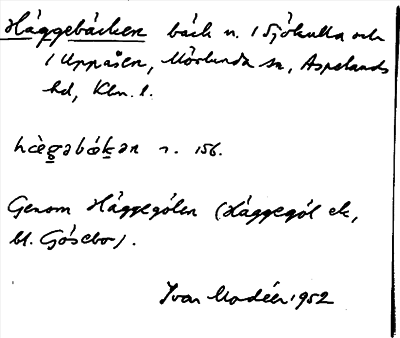 Häggebäcken bäck n. 1 Sjökulla och
1 Uppåsen, Mörlunda sn, Aspelands
hd, Klm. l.
hàgabäkan r. 156.
Genom Häggegölen (Häggegöl ek,
bl. Gösebo).
Ivar Modéer 1952